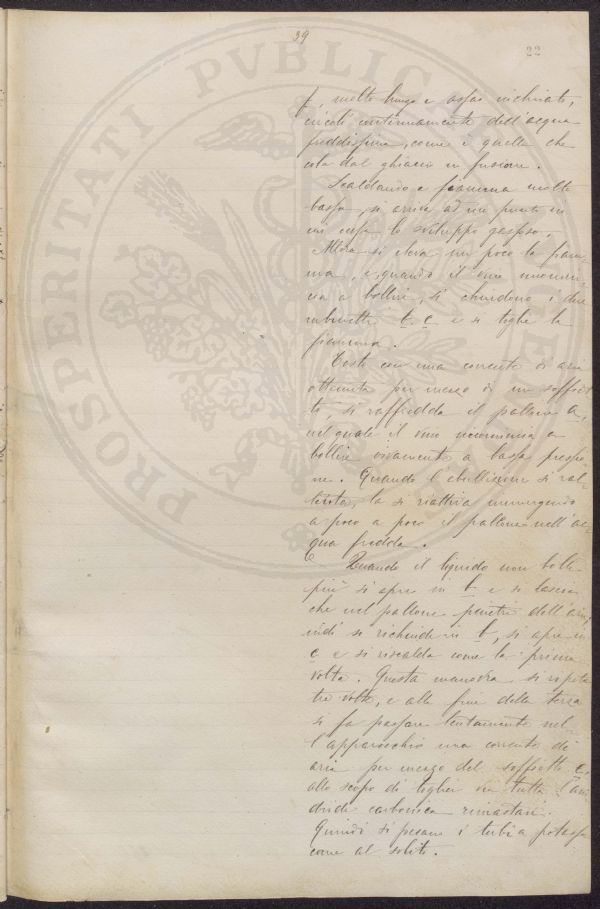 39
22
f, molto lungo e assai inclinato,
circoli continuamente dell'acqua
freddissima, come è quella che
cola dal ghiaccio in fusione.
Scaldando a fiamma molto
bassa, si arriva ad un punto in
cui cessa lo sviluppo gassoso.
Allora si eleva un poco la fiam-
ma, e, quando il vino incomin-
cia a bollire, si chiudono i due
rubinetti b. c e si toglie la
fiamma.
Tosto con una corrente di aria
ottenuta per mezzo di un soffiet-
to, si raffredda il pallone a,
nel quale il vino ricomincia a
bollire vivamente a bassa pressio-
ne. Quando l'ebullizione si ral-
lenta, la si riattiva immergendo
a poco a poco il pallone nell'ac-
qua fredda.
Quando il liquido non bolle
più si apre in b e si lascia
che nel pallone penetri dell'aria,
indi si richiude in b, si apre in
c e si riscalda come la prima
volta. Questa manovra si ripete
tre volte, e alla fine della terza
si fa passare lentamente nel-
l'apparecchio una corrente di
aria per mezzo del soffietto e,
allo scopo di toglier via tutta l'ani-
dride carbonica rimastavi.
Quindi si pesano i tubi a potassa
come al solito.
PROSPERITATI PVBLICAE